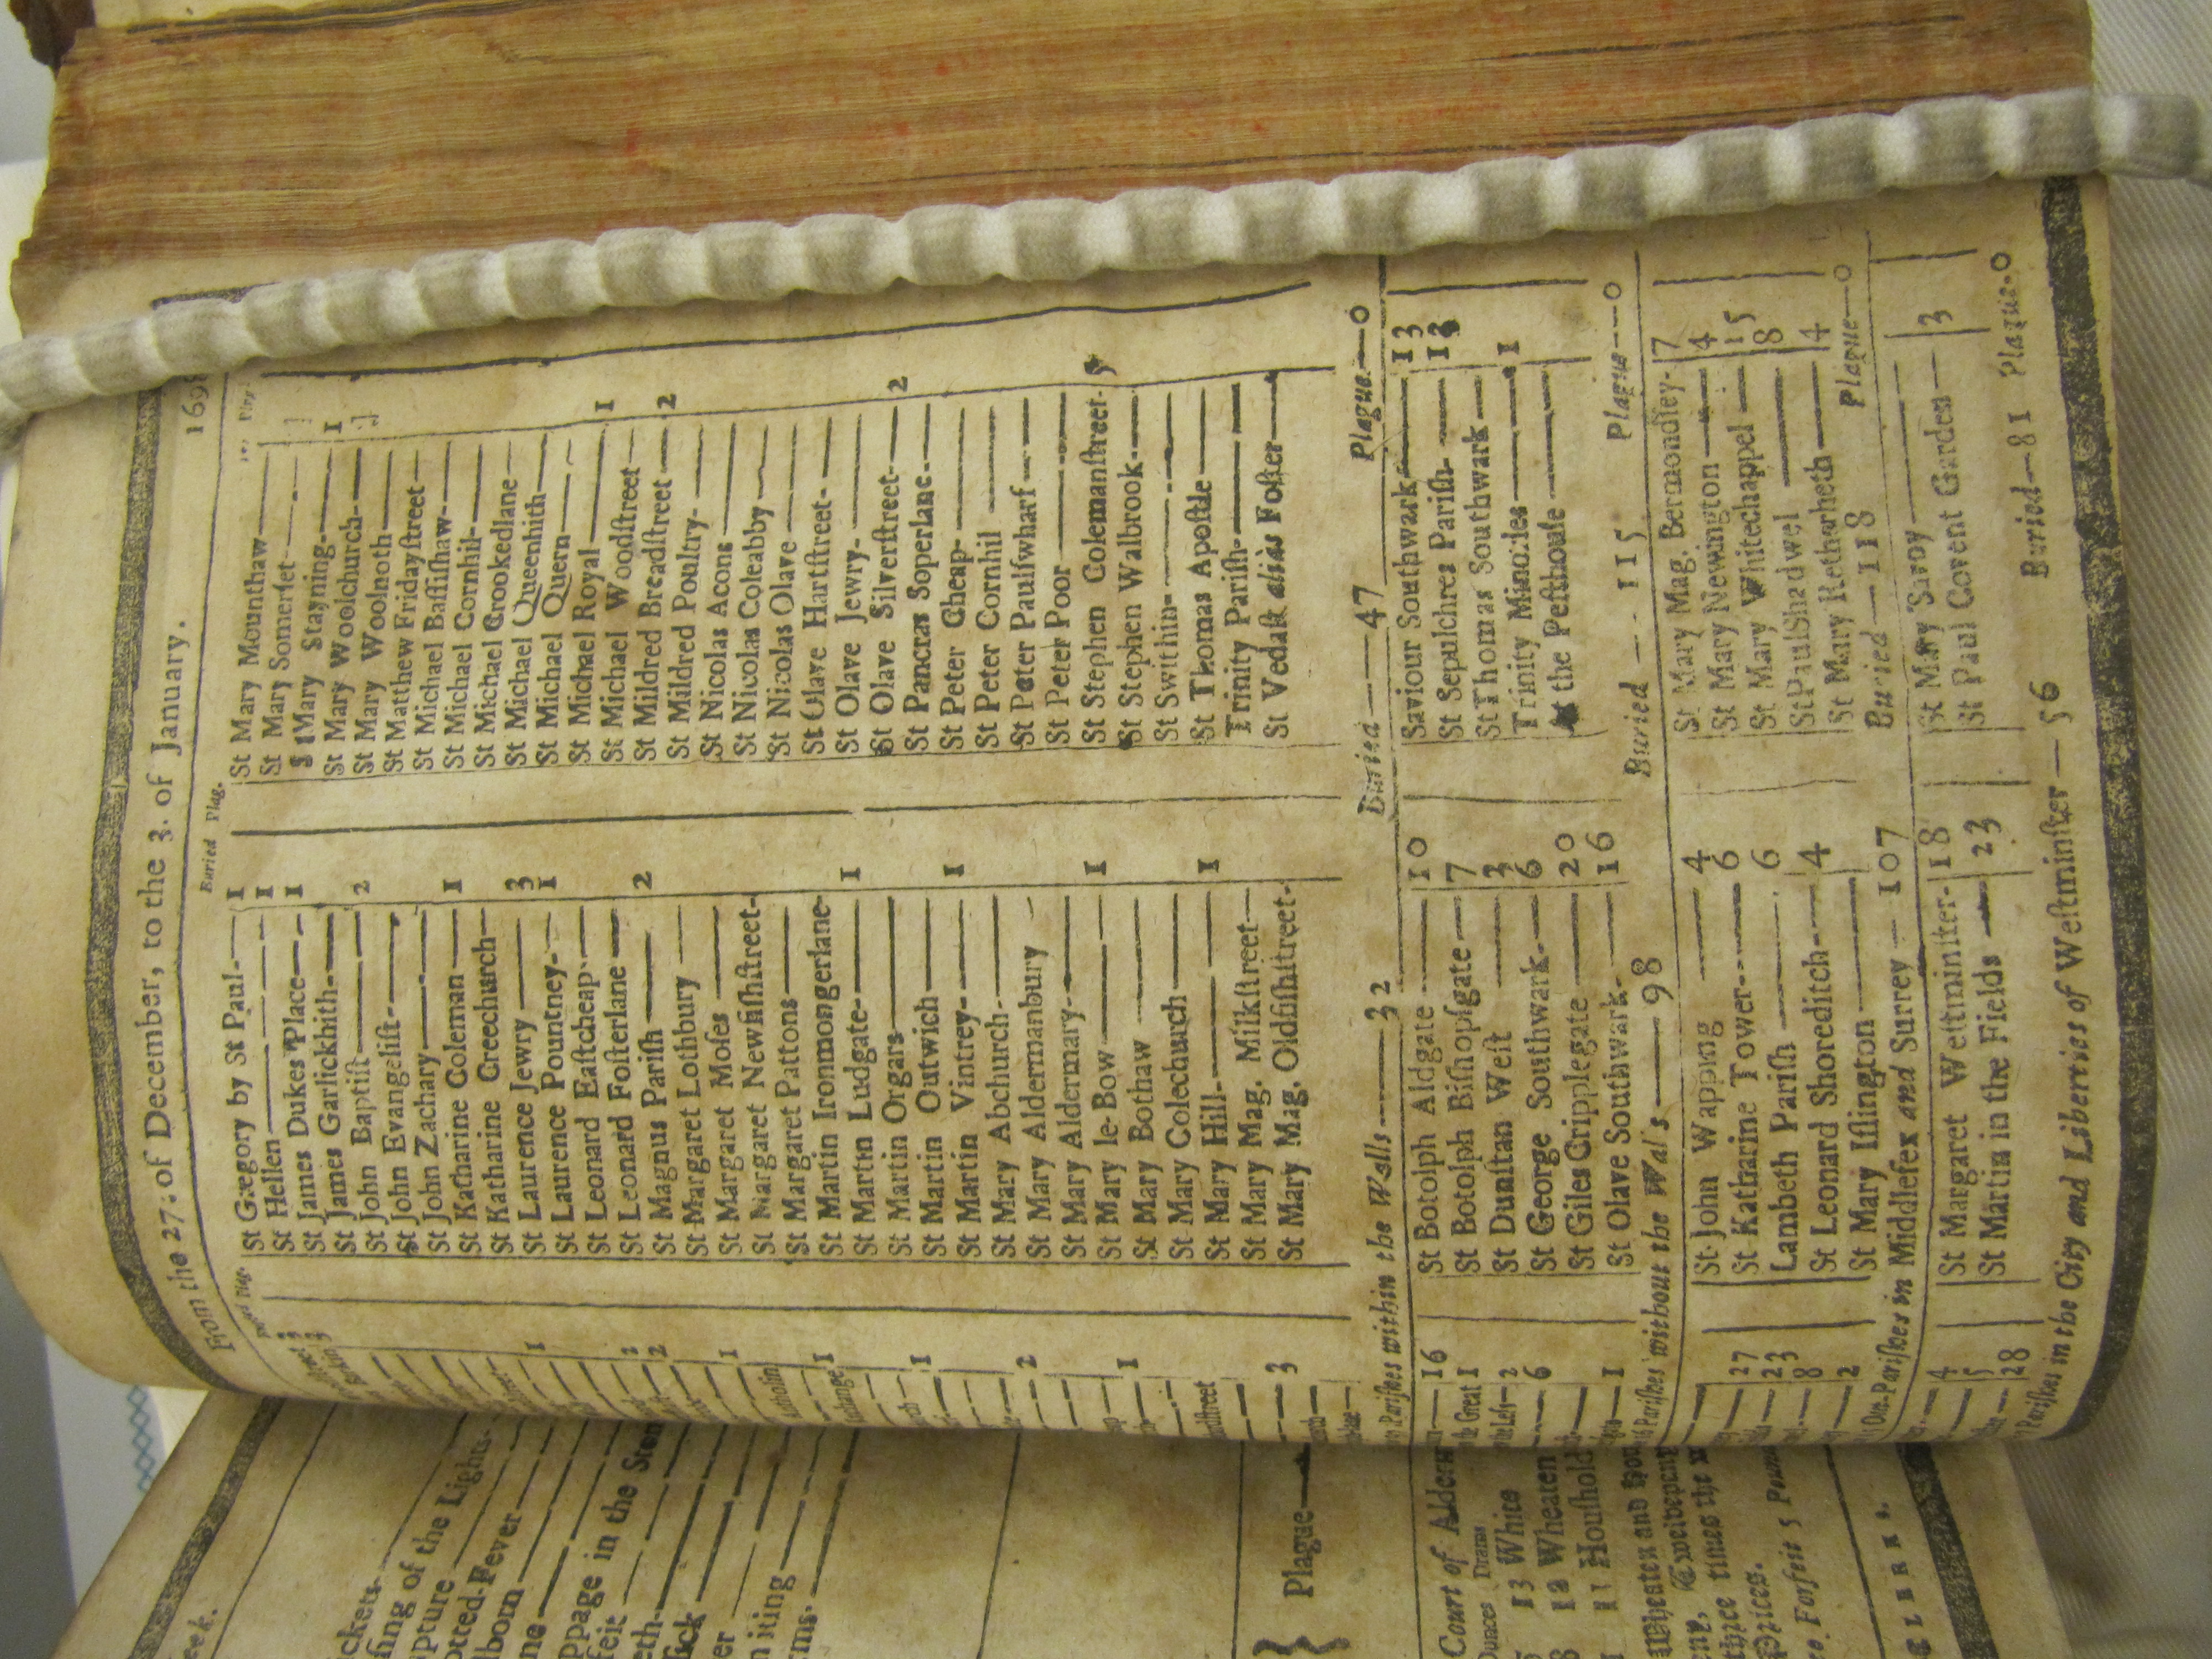 From the 27. of December, to the 3. of January. 169
Buried Plag.
St Gregory by St Paul- 1
St Hellen 1
St James Dukes Place 1
St James Garlickhith-
St John Baptist 2
St John Evangelist-
St John Zachary
St Katharine Coleman 1
St Katharine Creechurch
St Laurence Jewry 3
St Laurence Pountney- 1
St Leonard Eaſtcheap
St Leonard Foſterlane
St Magnus Pariſh 2
St Margaret Lothbury
St Margaret Moſes
St Margaret Newfiſhſtreet-
St Margaret Pattons
St Martin Ironmongerlane-
St Martin Ludgate- 1
St Martin Orgars
St Martin Outwich
St Martin Vintrey- 1
St Mary Abchurch-
St Mary Aldermanbury
St Mary Aldermary-
St Mary le-Bow 1
St Mary Bothaw
St Mary Colechurch
St Mary Hill- 1
St Mary Mag. Milkſtreet
St Mary Mag. Oldfiſhſtreet-
St Mary Mounthaw
St Mary Somerſet-
St Mary Stayning-
St Mary Woolchurch- 1
St Mary Woolnoth
St Matthew Fridayſtreet
St Michael Baſſiſhaw-
St Michael Cornhil-
St Michael Crookedlane
St Michael Queenhith
St Michael Quern
St Michael Royal 1
St Michael Woodſtreet
St Mildred Breadſtreet 2
St Mildred Poultry-
St Nicolas Acons
St Nicolas Coleabby
St Nicolas Olave
St Olave Hartſtreet-
St Olave Jewry-
St Olave Silverſtreet- 2
St Pancras Soperlane-
St Peter Cheap-
St Peter Cornhil
St Peter Paulſwharf
St Peter Poor
St Stephen Colemanſtreet-
St Stephen Walbrook-
St Swithin-
St Thomas Apoſtle
Trinity Pariſh-
St Vedaſt alias Foſter
Pariſhes within the Walls 32 Buried 47 Plague 0
16
the Great 1
the Leſs- 2
6
1
St Botolph Aldgate 10
St Botolph Biſhopſgate 7
St Dunſtan Weſt
St George Southwark- 6
St Giles Cripplegate 20
St Olave Southwark- 16
Saviour Southwark 13
St Sepulchres Pariſh-
St Thomas Southwark
Trinity Minories 1
At the Peſthouſe
Pariſhes without the Walls 98 Buried 115 Plague 0
27
23
8
2
St John Wapping 4
St Katharine Tower- 6
Lambeth Pariſh 6
St Leonard Shoreditch- 4
St Mary Iſlington
St Mary Mag. Bermondſey- 7
St Mary Newington 4
St Mary Whitechappel 15
St Paul Shadwel 8
St Mary Retherheth 4
Out-Pariſhes in Middleſex and Surrey 107 Buried 118 Plague 0
4
5
28
St Margaret Weſtminſter- 18
St Martin in the Fields 23
St Mary Savoy
St Paul Covent Garden 3
Pariſhes in the City and Liberties of Weſtminſter 56 Buried 81 Plague 0
eek.
ickets
ing of the Lights-
pture
otted-Fever
lborn
ppage in the Stom
feit
eth-
ſick
miting
rms-
Plague
Court of Alderm
Ounces Drams
13 White
12 Wheaten
11 Houſhold
Wheaten and
times the
Prices.
Forfeit 5 Poun